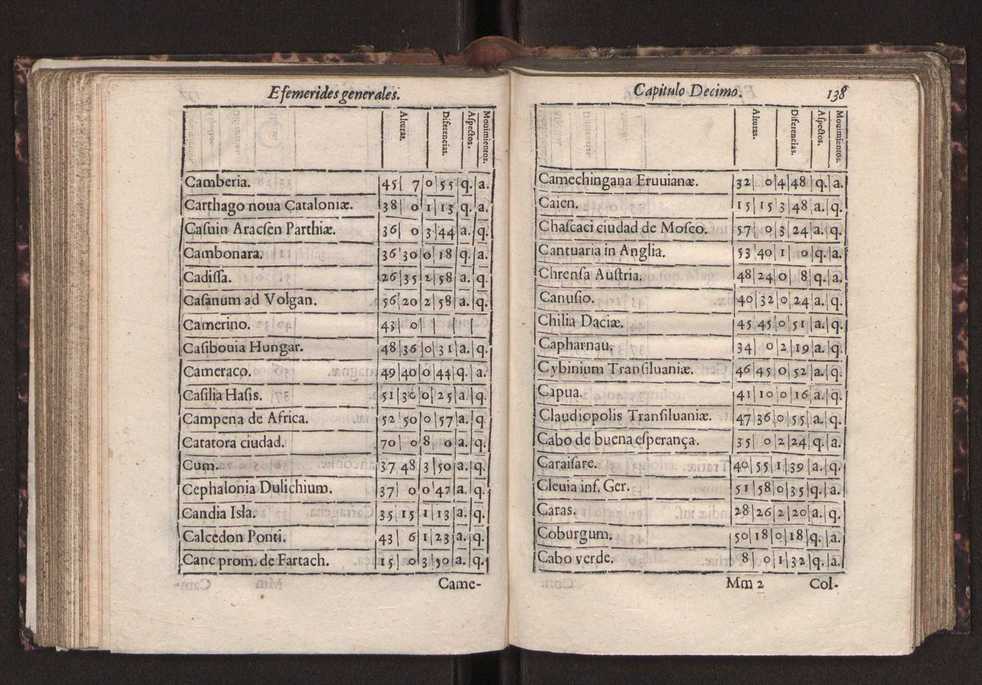 Efemerides generales.
Alturas. Diferencias. Aspectos. Mouimientos.
Camberia. 45 7 0 55 q. a.
Carthago noua Cataloniæ. 38 0 1 13 q. a.
Casuin Aracsen Parthiæ. 36 0 3 44 a. q.
Cambonara. 36 30 0 18 q. a.
Cadissa. 26 35 2 58 a. q.
Casanum ad Volgan. 56 20 2 58 a. q.
Camerino. 43 0
Casibouia Hungar. 48 36 0 31 a. q.
Cameraco. 49 40 0 44 q. a.
Casilia Hasis. 51 30 0 25 a. q.
Campena de Africa. 52 50 0 57 a. q.
Catatora ciudad. 70 0 8 0 a. q.
Cum. 37 48 3 50 a. q.
Cephalonia Dulichium. 37 0 0 47 a. q.
Candia Isla. 35 15 1 13 a. q.
Calcedon Ponti. 43 6 1 23 a. q.
Cane prom. de Fartach. 15 0 3 50 a. q.
Came-
Capitulo Decimo. 138
Alturas. Diferencias. Aspectos. Mouimientos.
Camechingana Eruuianæ. 32 0 4 48 q. a.
Caien. 15 15 3 48 a. q.
Chascaci ciudad de Mosco. 57 0 3 24 a. q.
Cantuaria in Anglia. 53 40 1 0 q. a.
Chrensa Austria. 48 24 0 8 q. a.
Canusio. 40 32 0 24 a. q.
Chilia Daciæ. 45 45 0 51 a. q.
Capharnau. 34 0 2 19 a. q.
Cybinium Transiluaniæ. 46 45 0 52 a. q.
Capua. 41 10 0 16 a. q.
Claudiopolis Transiluaniæ. 47 36 0 55 a. q.
Cabo de buena esperança. 35 0 2 24 q. a.
Caraisare. 40 55 1 39 a. q.
Cleuia inf. Ger. 51 58 0 35 q. a.
Caras. 28 26 2 20 a. q.
Coburgum. 50 18 0 18 q. a.
Cabo verde. 8 0 1 32 q. a.
Mm 2 Col-